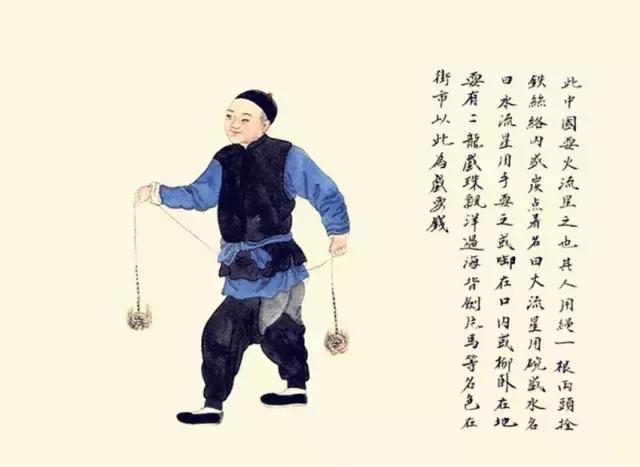 此中國耍火流星之也其人用繩一根両頭拴
鉄絲絡内或炭点着名曰大流星用碗盛水名
曰水流星用手耍之或啣在口内或柳卧在地
耍有二龍戲珠観洋過海背劍片馬等名色在
街市以此為戲耍錢